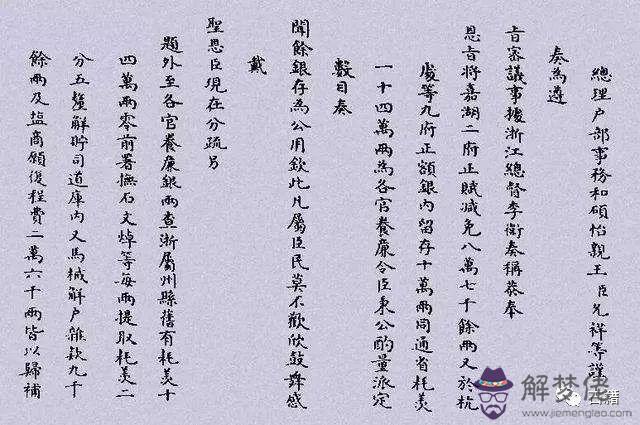 總理户部事務和碩怡親王臣允祥等謹
奏為遵
旨審議事據浙江總督李衛奏稱恭奉
恩旨將嘉湖二府正賦減免八萬七千餘兩又於杭
處等九府正額銀内留存十萬兩同通省耗羡
一十四萬兩為各官養廉令臣秉公酌量派定
數目奏
聞餘銀存為公用欽此凡屬臣民莫不歡欣鼓舞感
戴
聖恩臣現在分疏另
題外至各官養廉銀兩查浙屬州縣舊有耗羡十
四萬兩零前署撫石文焯等每兩提取耗羡二
分五釐解貯司道庫内又馬械解户雜欵九千
餘兩及盐商願復程費二萬六千兩皆以歸補
解梦佬
www.jiemenglao.com